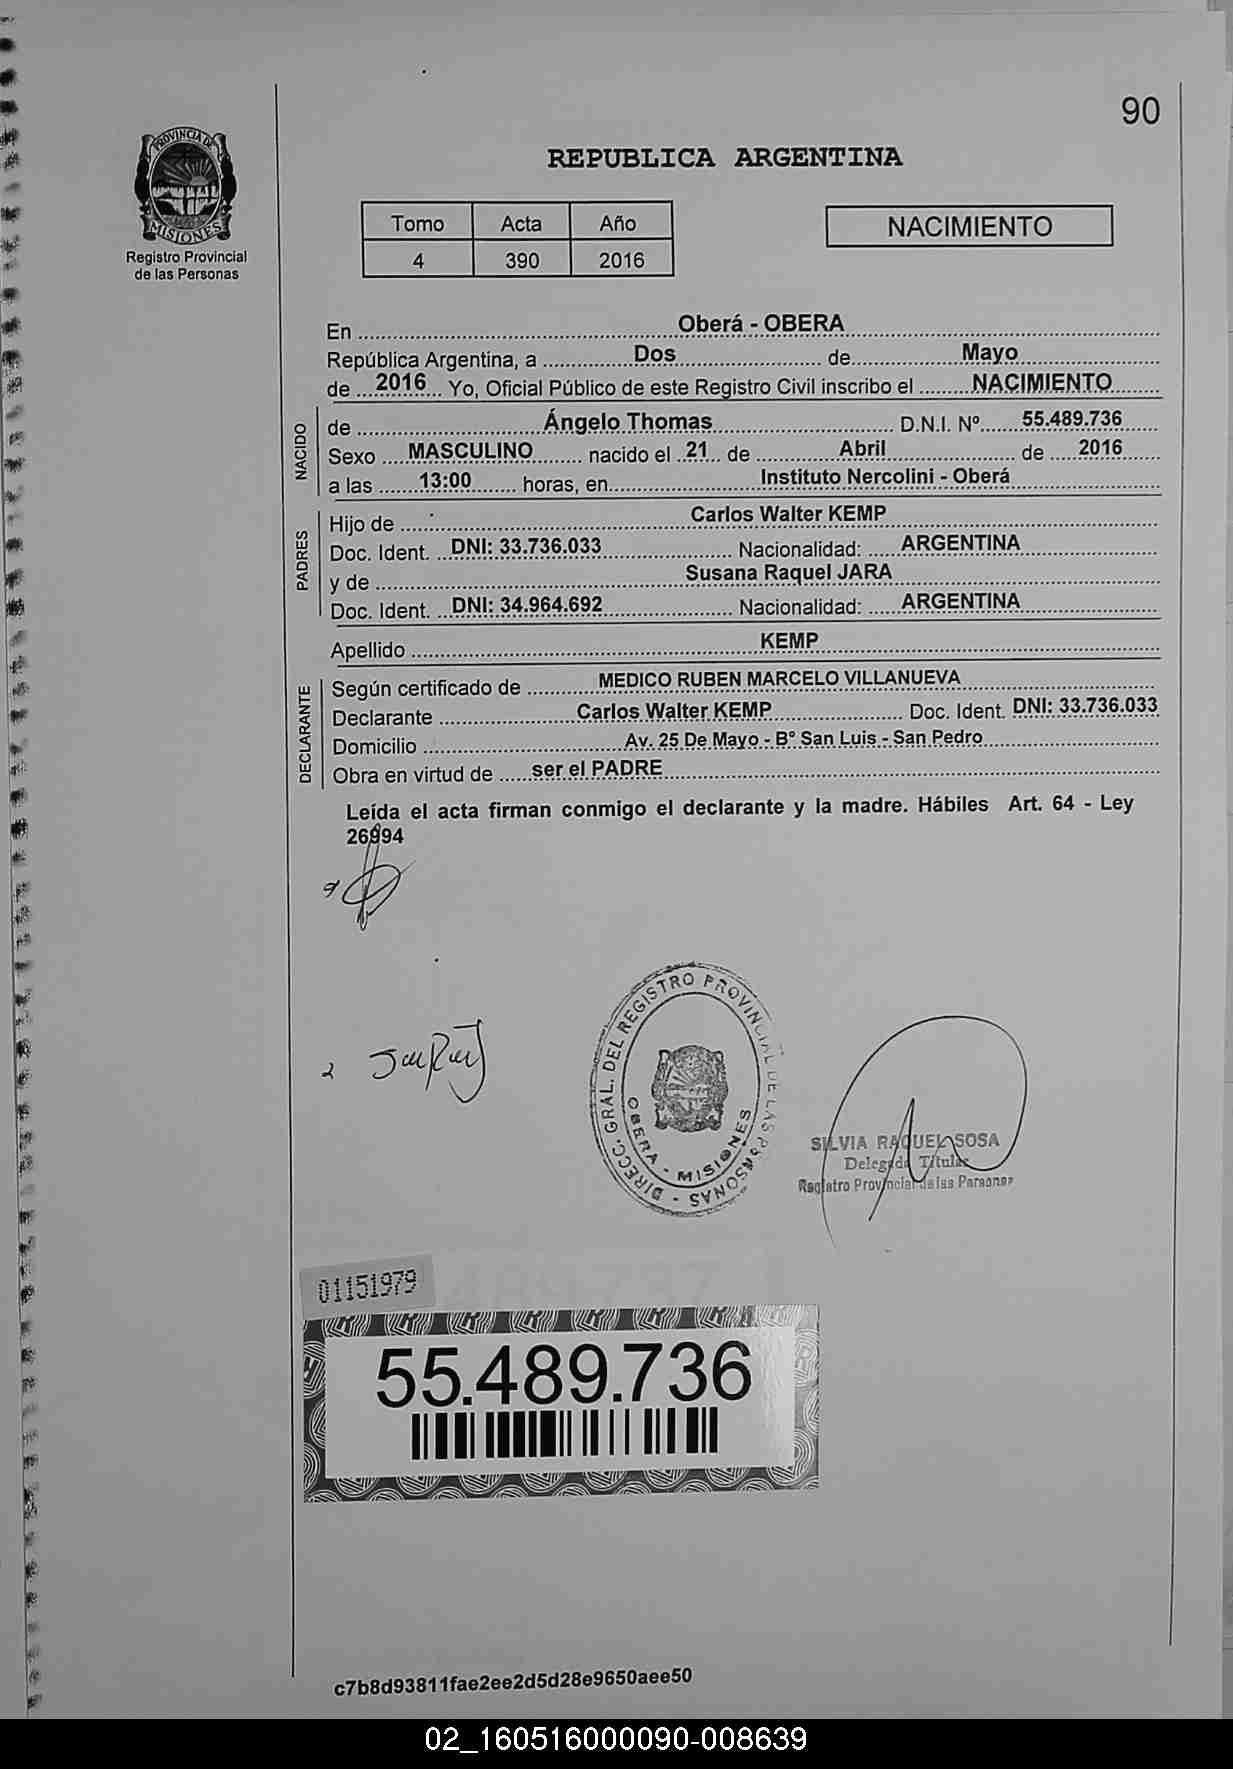 90
PROVINCIA DE
MISIONES
Registro Provincial
de las Personas
REPUBLICA ARGENTINA
Tomo Acta Año
4 390 2016
NACIMIENTO
En Oberá - OBERA
República Argentina, a Dos de Mayo
de 2016 Yo, Oficial Público de este Registro Civil inscribo el NACIMIENTO
NACIDO
de Ángelo Thomas D.N.I. Nº 55.489.736
Sexo MASCULINO nacido el 21 de Abril de 2016
a las 13:00 horas, en Instituto Nercolini - Oberá
PADRES
Hijo de Carlos Walter KEMP
Doc. Ident. DNI: 33.736.033 Nacionalidad: ARGENTINA
y de Susana Raquel JARA
Doc. Ident. DNI: 34.964.692 Nacionalidad: ARGENTINA
Apellido KEMP
DECLARANTE
Según certificado de MEDICO RUBEN MARCELO VILLANUEVA
Declarante Carlos Walter KEMP Doc. Ident. DNI: 33.736.033
Domicilio Av. 25 De Mayo - B° San Luis - San Pedro
Obra en virtud de ser el PADRE
Leída el acta firman conmigo el declarante y la madre. Hábiles Art. 64 - Ley
26994
DIRECC. GRAL. DEL REGISTRO PROVINCIAL DE LAS PERSONAS -
OBERA - MISIONES
2
SILVIA RAQUEL SOSA
Delegada Titular
Registro Provincial de las Personas
01151979
55.489.736
c7b8d93811fae2ee2d5d28e9650aee50
02_160516000090-008639